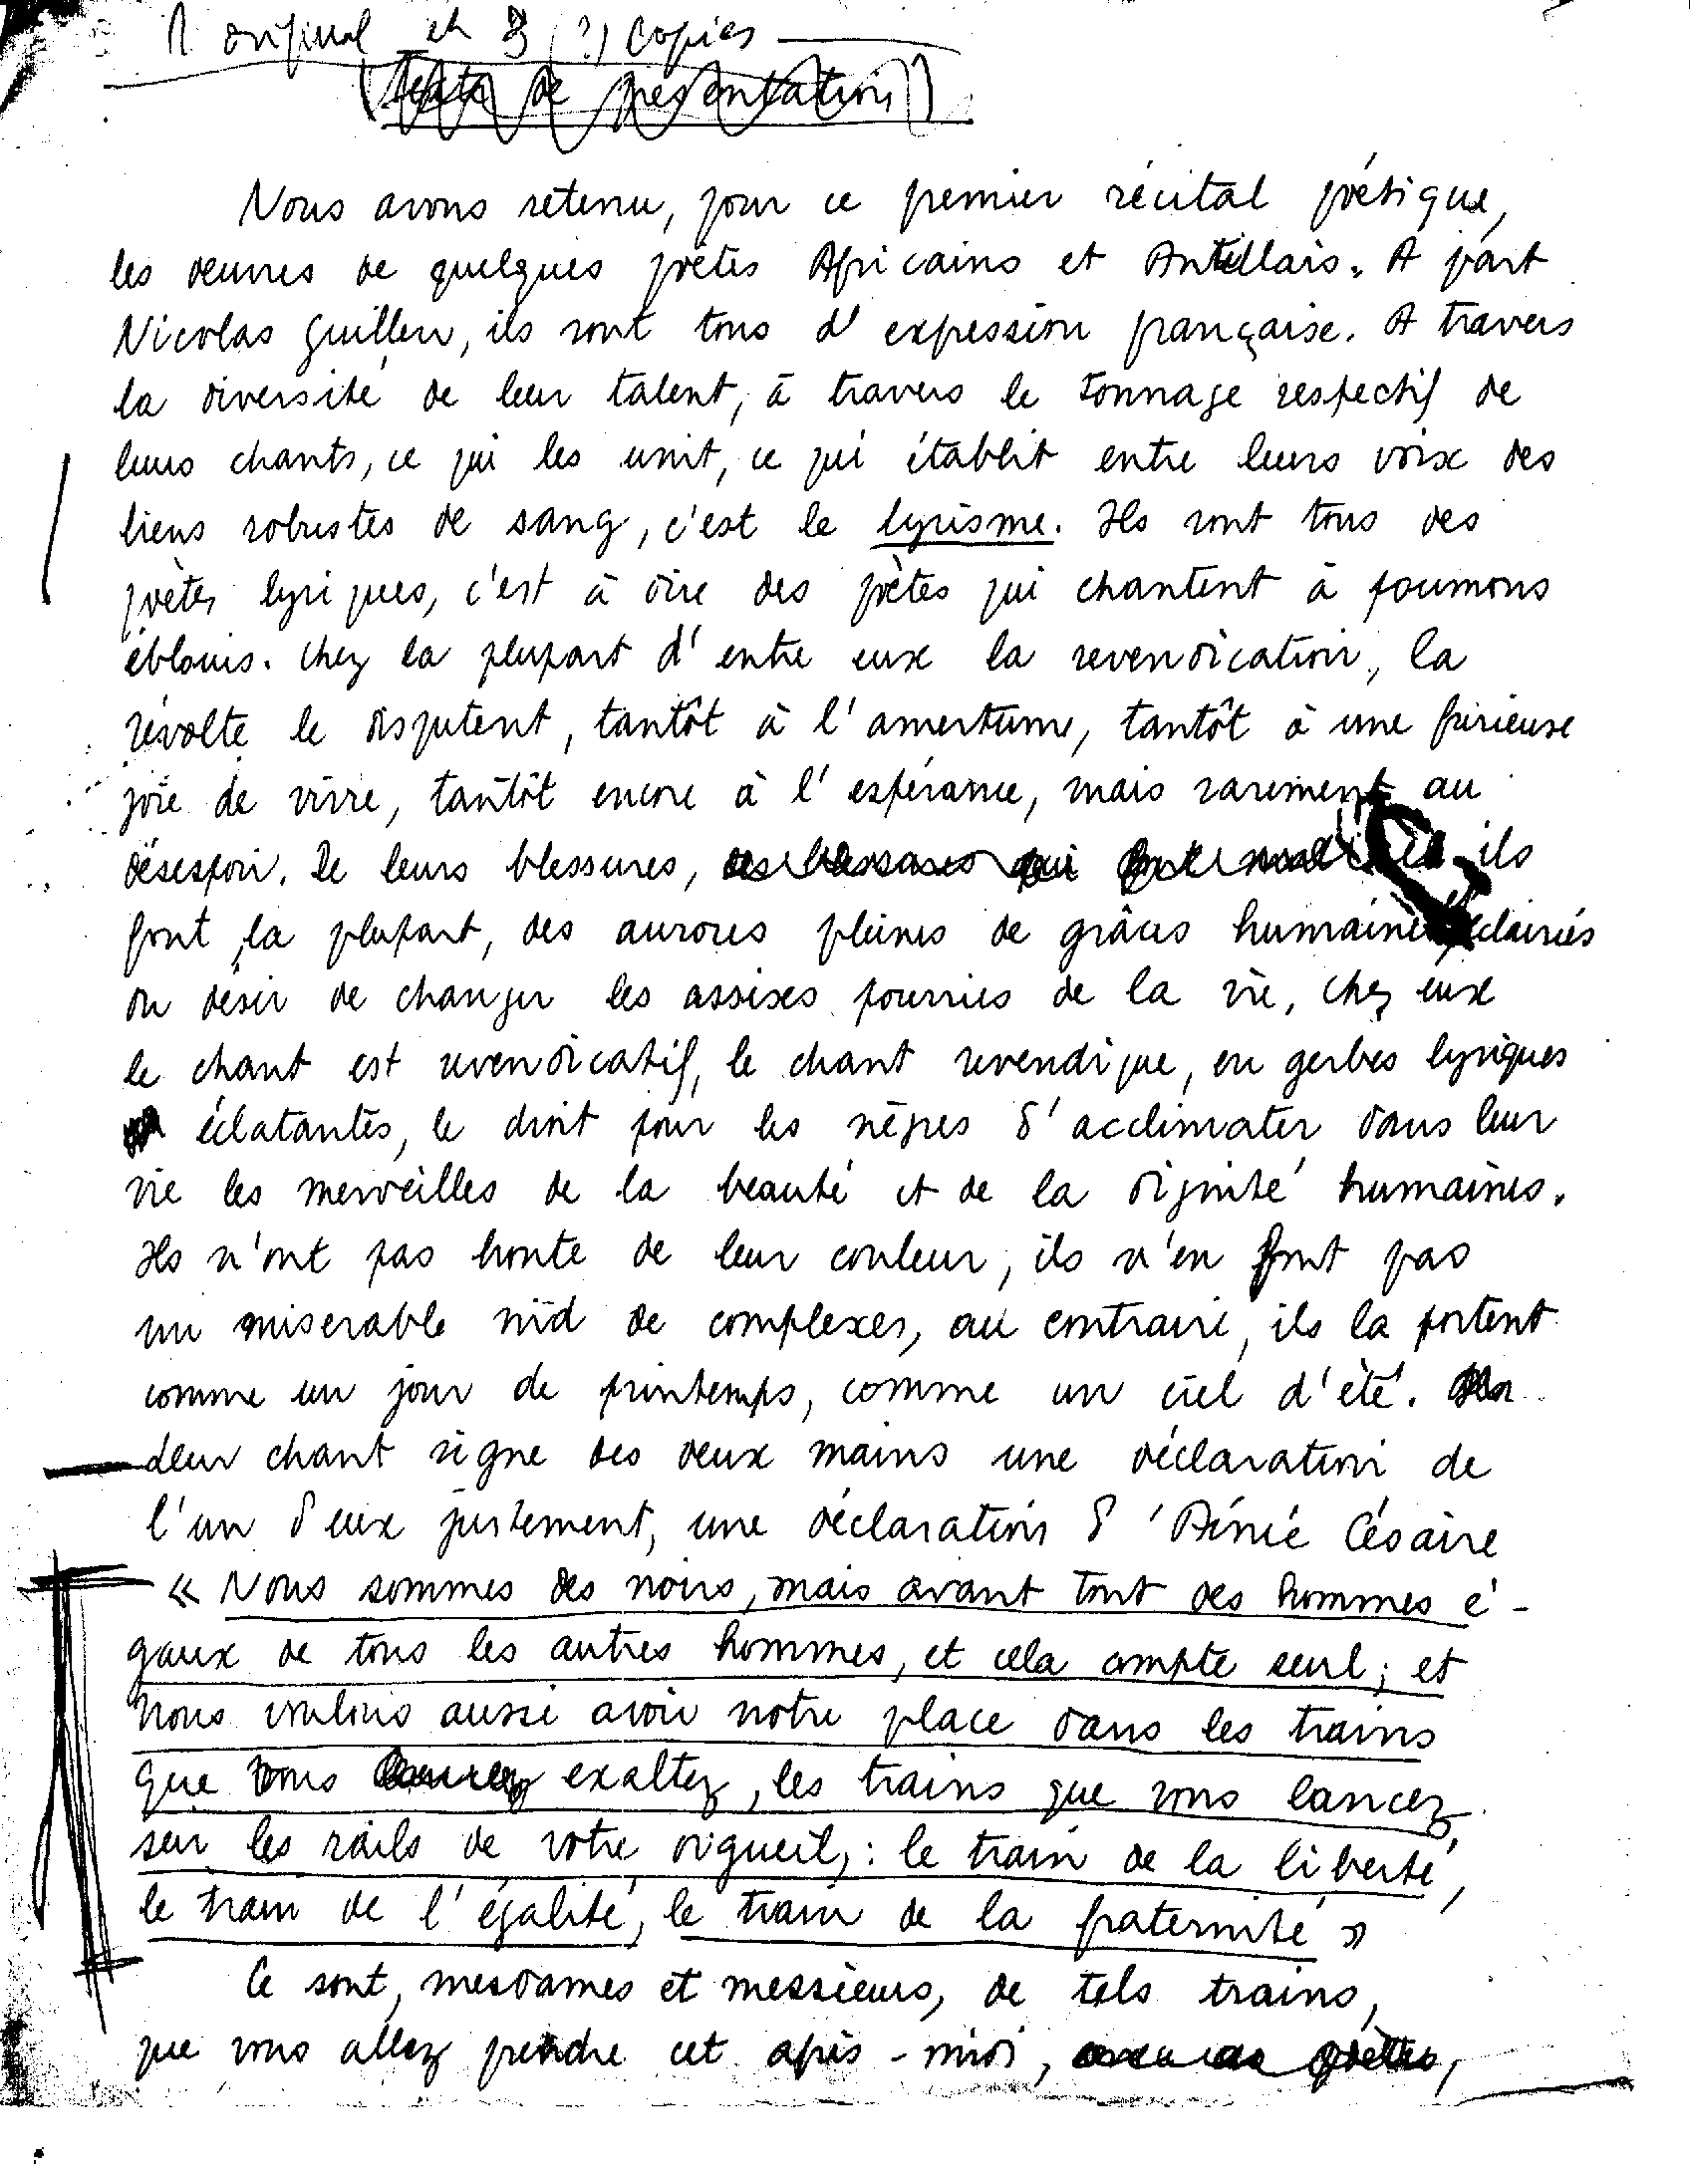 1 original et 3 (?) copies
(Texte de présentation)
Nous avons retenu, pour ce premier récital poétique,
les oeuvres de quelques poètes Africains et Antillais. A part
Nicolas Guillen, ils sont tous d'expression française. A travers
la diversité de leur talent, à travers le tonnage respectif de
leurs chants, ce qui les unit, ce qui établit entre leurs voix des
liens robustes de sang, c'est le lyrisme. Ils sont tous des
poètes lyriques, c'est à dire des poètes qui chantent à poumons
éblouis. Chez la plupart d'entre eux la revendication, la
révolte le disputent, tantôt à l'amertume, tantôt à une furieuse
joie de vivre, tantôt encore à l'espérance, mais rarement au
désespoir. De leurs blessures, ils
font, la plupart, des aurores pleines de grâces humaines éclairées
du désir de changer les assises pourries de la vie, chez eux
le chant est revendicatif, le chant revendique, en gerbes lyriques
éclatantes, le droit pour les nègres d'acclimater dans leur
vie les merveilles de la beauté et de la dignité humaines.
Ils n'ont pas honte de leur couleur, ils n'en font pas
un miserable nid de complexes, au contraire, ils la portent
comme un jour de printemps, comme un ciel d'été.
Leur chant signe des deux mains une déclaration de
l'un d'eux justement, une déclaration d'Aimé Césaire
« Nous sommes des noirs, mais avant tout des hommes é-
gaux de tous les autres hommes, et cela compte seul ; et
nous voulons aussi avoir notre place dans les trains
que vous exaltez, les trains que vous lancez
sur les rails de votre orgueil, : le train de la liberté,
le train de l'égalité, le train de la fraternité »
Ce sont, mesdames et messieurs, de tels trains,
que vous allez prendre cet après-midi,